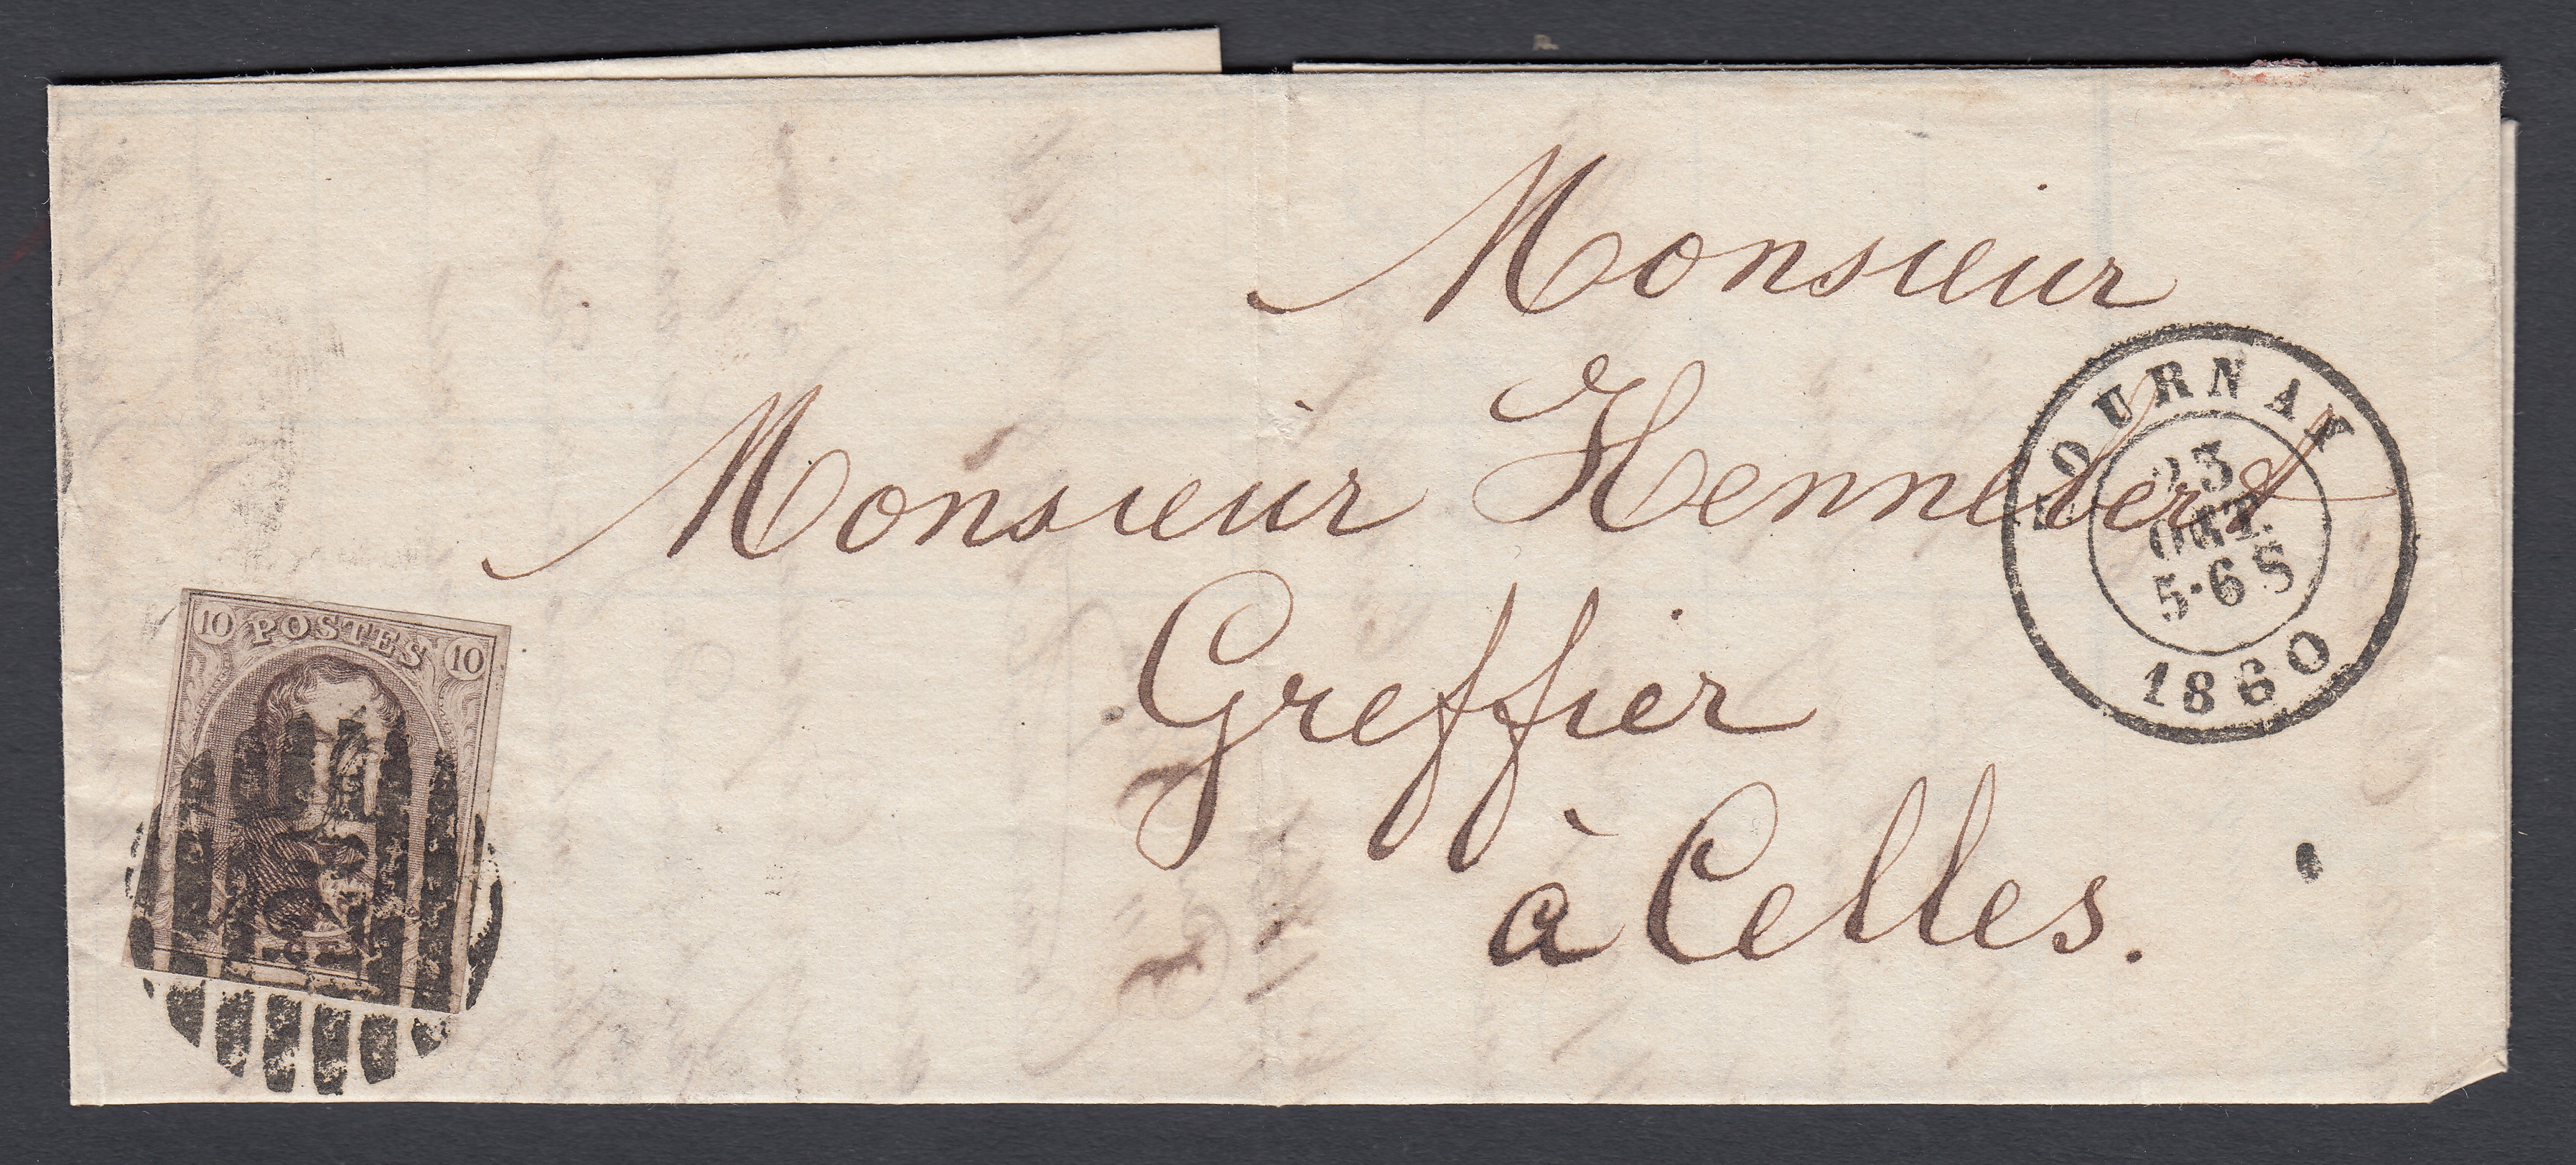 Monsieur
Monsieur Hennebert
Greffier
à Celles.
TOURNAY
23
OCT.
5·6 S
1860
10 POSTES 10